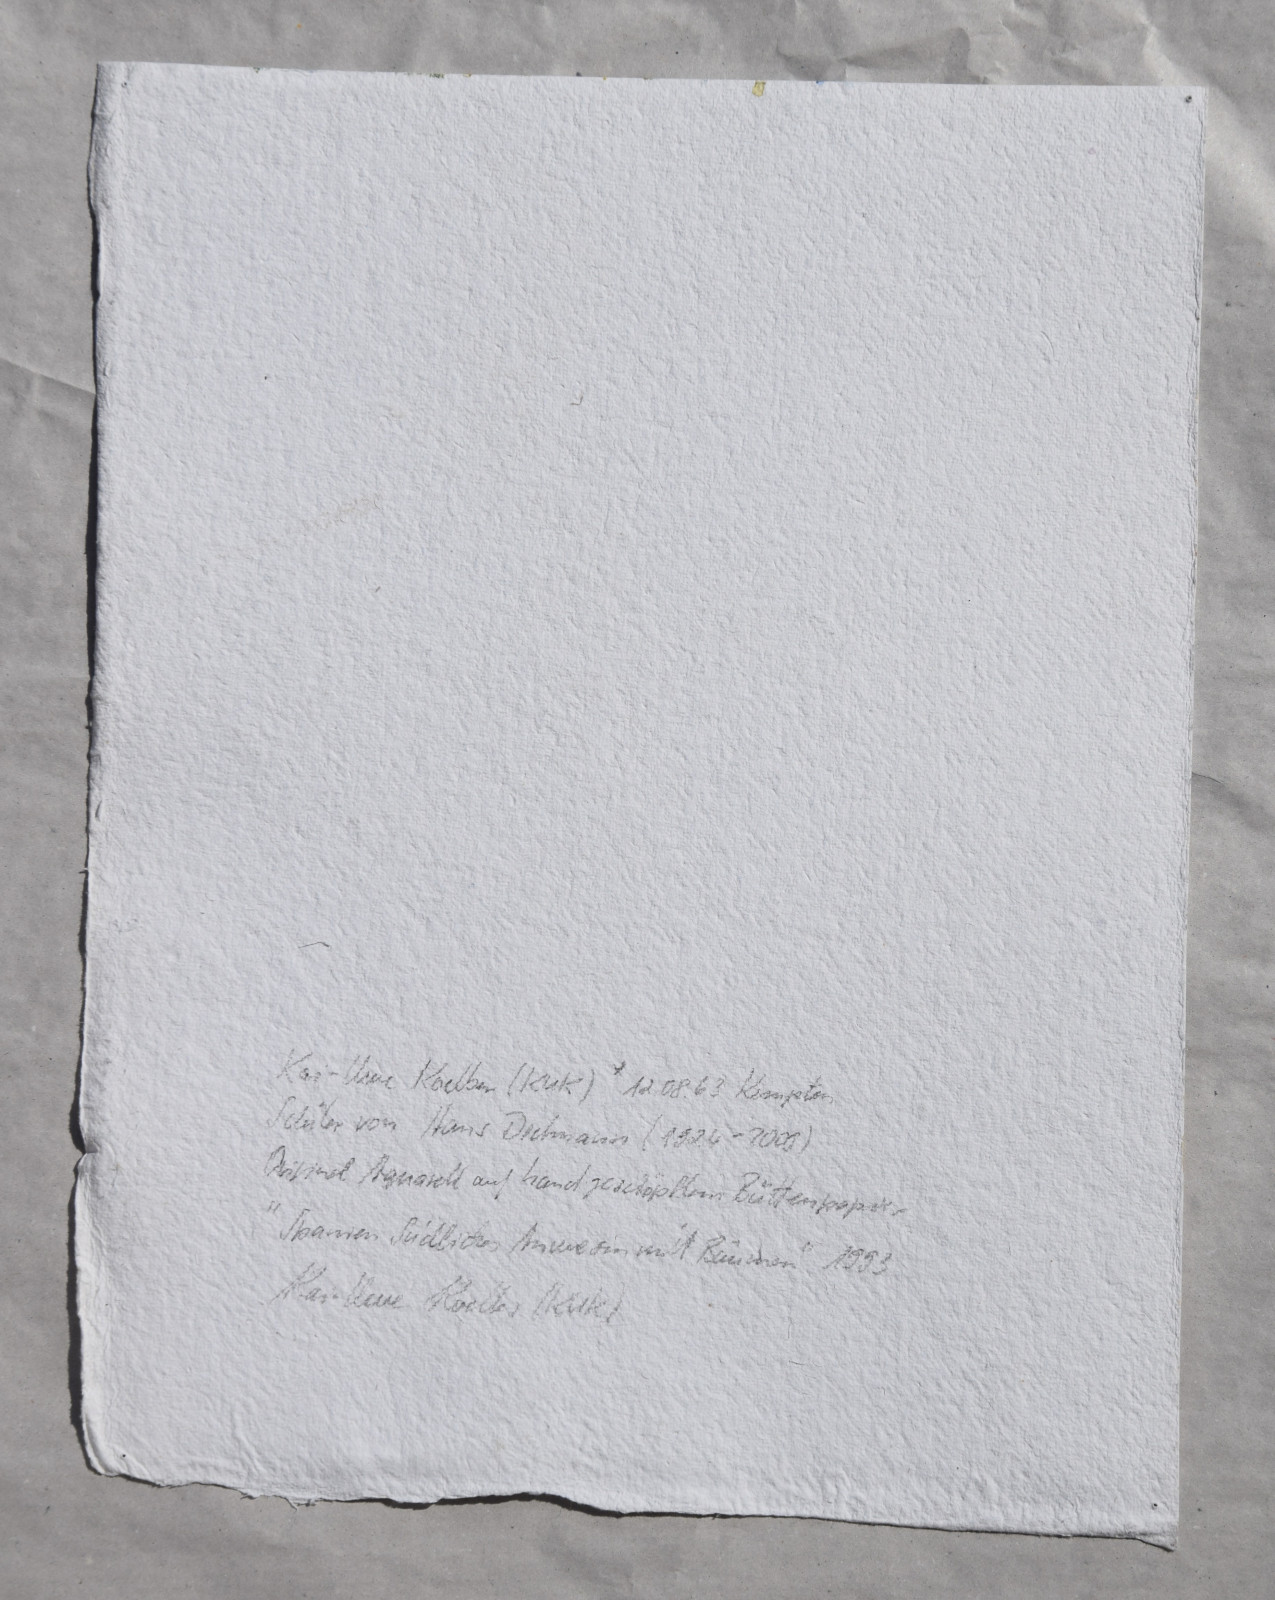 Kai-Uwe Koelber (KUK) * 12.08.63 Kempten
Schüler von Hans Dochmann (1926-2008)
Original Aquarell auf handgeschöpftem Büttenpapier
"Spanien Südliches Anwesen mit Bäumen" 1993
Kai-Uwe Koelber (KUK)